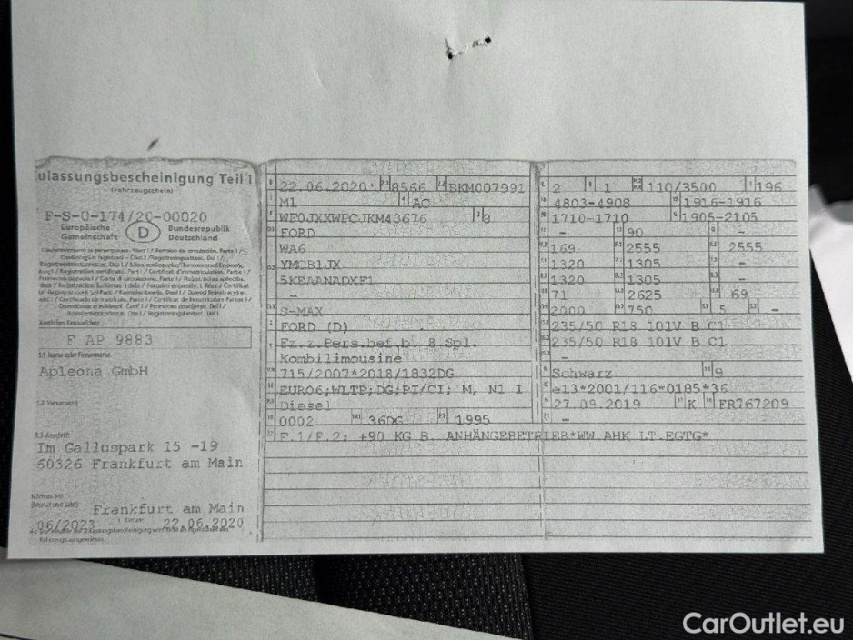 ulassungsbescheinigung Teil I
(Fahrzeugschein)
F-S-0-174/20-00020
Europäische Gemeinschaft D Bundesrepublik Deutschland
F AP 9883
Apleona GmbH
Im Galluspark 15 -19
60326 Frankfurt am Main
Frankfurt am Main
06/2023 22.06.2020
22.06.2020 8566 BKM007991
M1 AC
8
FORD
WA6
-
S-MAX
FORD (D)
Fz.z.Pers.bef.b. 8 Spl.
Kombilimousine
715/2007*2018/1832DG
EURO6;WLTP;DG;PI/CI; M, N1 I
Diesel
0002 36DG 1995
F.1/F.2; +90 KG B. ANHÄNGEBETRIEB*WW.AHK LT.EGTG*
2 1 110/3500 196
4803-4908 1916-1916
1710-1710 1905-2105
- 90 -
169 2555 2555
1320 1305 -
1320 1305 -
71 2625 69
2000 750 5 -
235/50 R18 101V B C1
235/50 R18 101V B C1
-
Schwarz 9
e13*2001/116*0185*36
27.09.2019 K FR767209
-
CarOutlet.eu